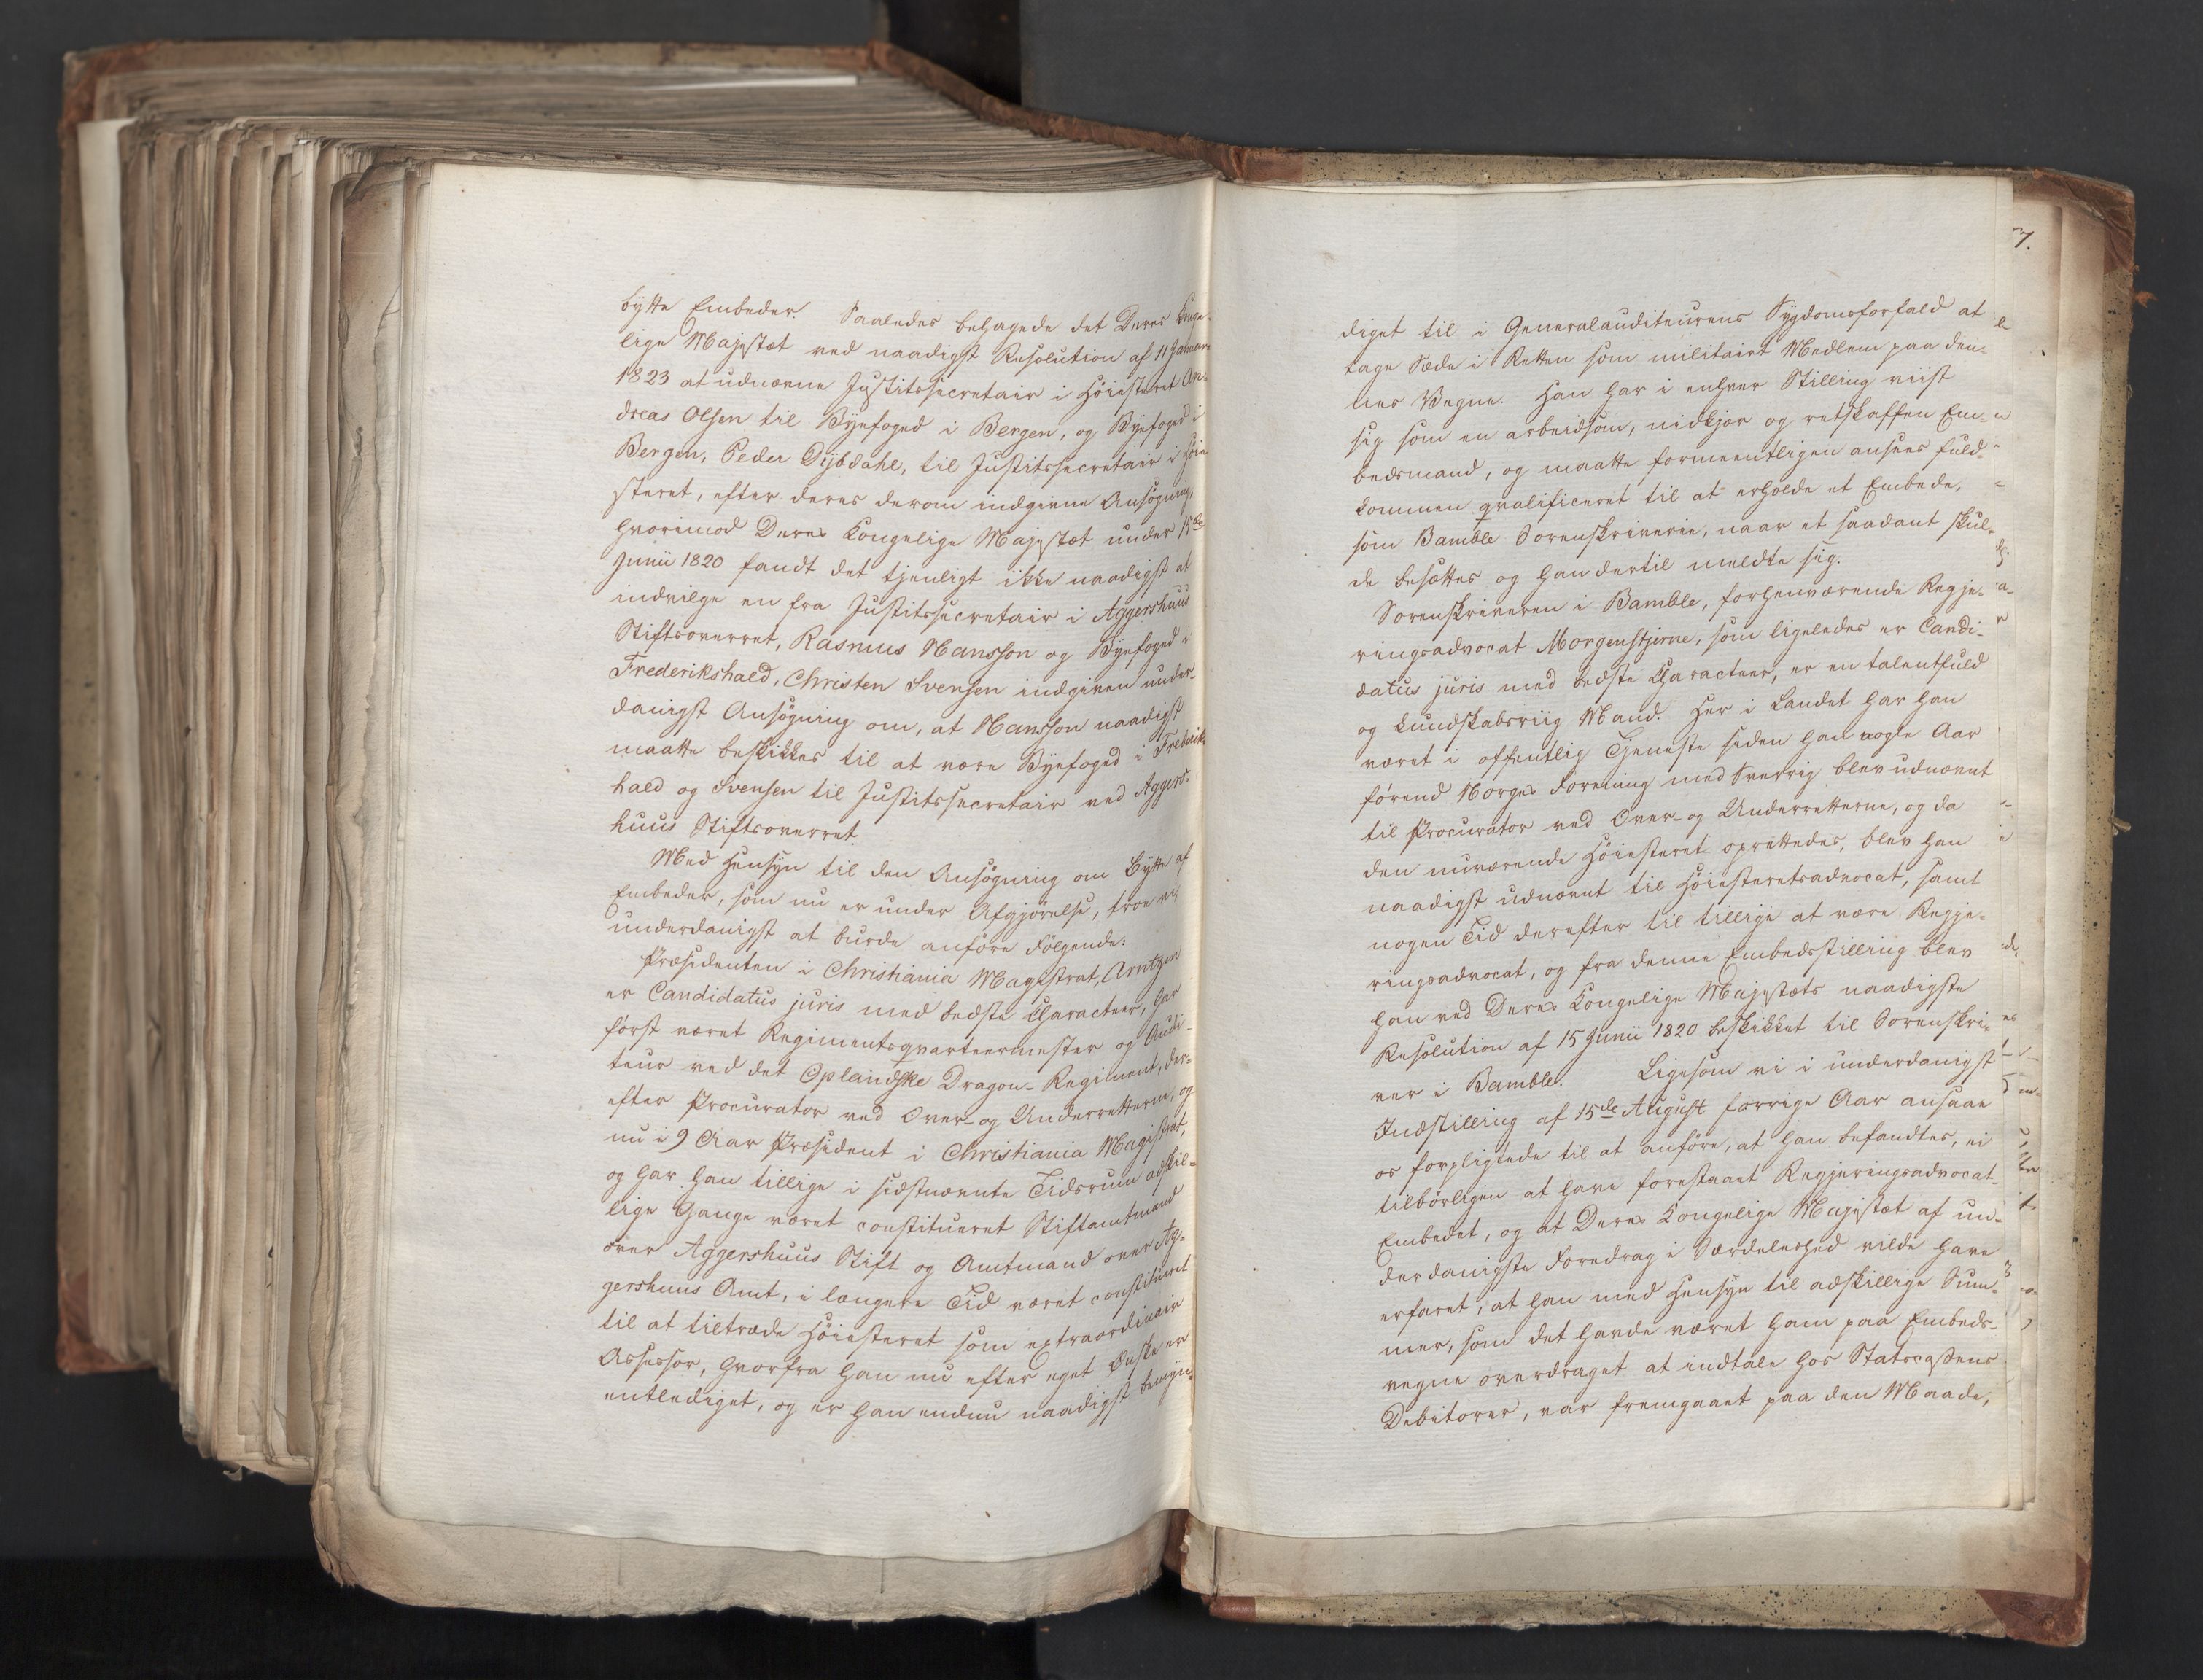 bytte Embeder. Saaledes behagede det Deres Konge-
lige Majestæt ved naadigst Resolution af 11 Januar
1823 at udnævne Justitssecretair i Höiesteret An-
dreas Olsen til Byefoged i Bergen, og Byefoged i
Bergen, Peder Dybdahl, til Justitssecretair i Höie
steret, efter deres derom indgivne Ansögning,
hvorimod Deres Kongelige Majestæt under 15de
Junii 1820 fandt det tjenligt ikke naadigst at
indvilge en fra Justitssecretair i Aggershuus
Stiftsoverret, Rasmus Hansson og Byefoged i
Frederikshald, Christen Svensen indgiven under-
danigst Ansögning om, at Hansson naadigst
maatte beskikkes til at være Byefoged i Frederiks
hald og Svensen til Justitssecretair ved Aggers-
huus Stiftsoverret.
Med Hensyn til den Ansögning om Bytte af
Embeder, som nu er under Afgjörelse, troe vi
underdanigst at burde anföre Fölgende:
Præsidenten i Christiania Magistrat, Arntzen
er Candidatus juris med bedste Characteer, har
först været Regimentsqvarteermester og Audi-
teur ved det Oplandske Dragon-Regiment, der-
efter Procurator ved Over- og Underretterne, og
nu i 9 Aar Præsident i Christiania Magistrat,
og har han tillige i sidstnævnte Tidsrum adskil-
lige Gange været constitueret Stiftamtmand
over Aggershuus Stift og Amtmand over Ag-
gershuus Amt, i længere Tid været constitueret
til at tiltræde Höiesteret som extraordinair
Assessor, hvorfra han nu efter eget Önske er
entlediget, og er han endnu naadigst bemyn-
7.
diget til i Generalauditeurens Sygdomsforfald at
tage Sæde i Retten som militairt Medlem paa den-
nes Vegne. Han har i enhver Stilling viist
sig som en arbeidsom, nidkjær og retskaffen Em-
bedsmand, og maatte formeentligen ansees fuld-
kommen qvalificeret til at erholde et Embede,
som Bamble Sorenskriverie, naar et saadant skul-
de besættes og han dertil meldte sig.
Sorenskriveren i Bamble, forhenværende Regje-
ringsadvocat Morgenstjerne, som ligeledes er Candi-
datus juris med bedste Characteer, er en talentfuld
og kundskabsriig Mand. Her i Landet har han
været i offentlig Tjeneste siden han nogle Aar
förend Norges Forening med Sverrig blev udnævnt
til Procurator ved Over- og Underretterne, og da
den nuværende Höiesteret oprettedes, blev han
naadigst udnævnt til Höiesteretsadvocat, samt
nogen Tid derefter til tillige at være Regje-
ringsadvocat, og fra denne Embedsstilling blev
han ved Deres Kongelige Majestæts naadigste
Resolution af 15 Junii 1820 beskikket til Sorenskri-
ver i Bamble. Ligesom vi i underdanigst
Indstilling af 15de August forrige Aar ansaae
os forpligtede til at anföre, at han befandtes, ei
tilbörligen at have forestaaet Regjeringsadvocat-
Embedet, og at Deres Kongelige Majestæt af un-
derdanigste Foredrag i Særdeleshed vilde have
erfaret, at han med Hensyn til adskillige Sum-
mer, som det havde været ham paa Embeds-
vegne overdraget at indtale hos Statscassens
Debitorer, var fremgaaet paa den Maade,